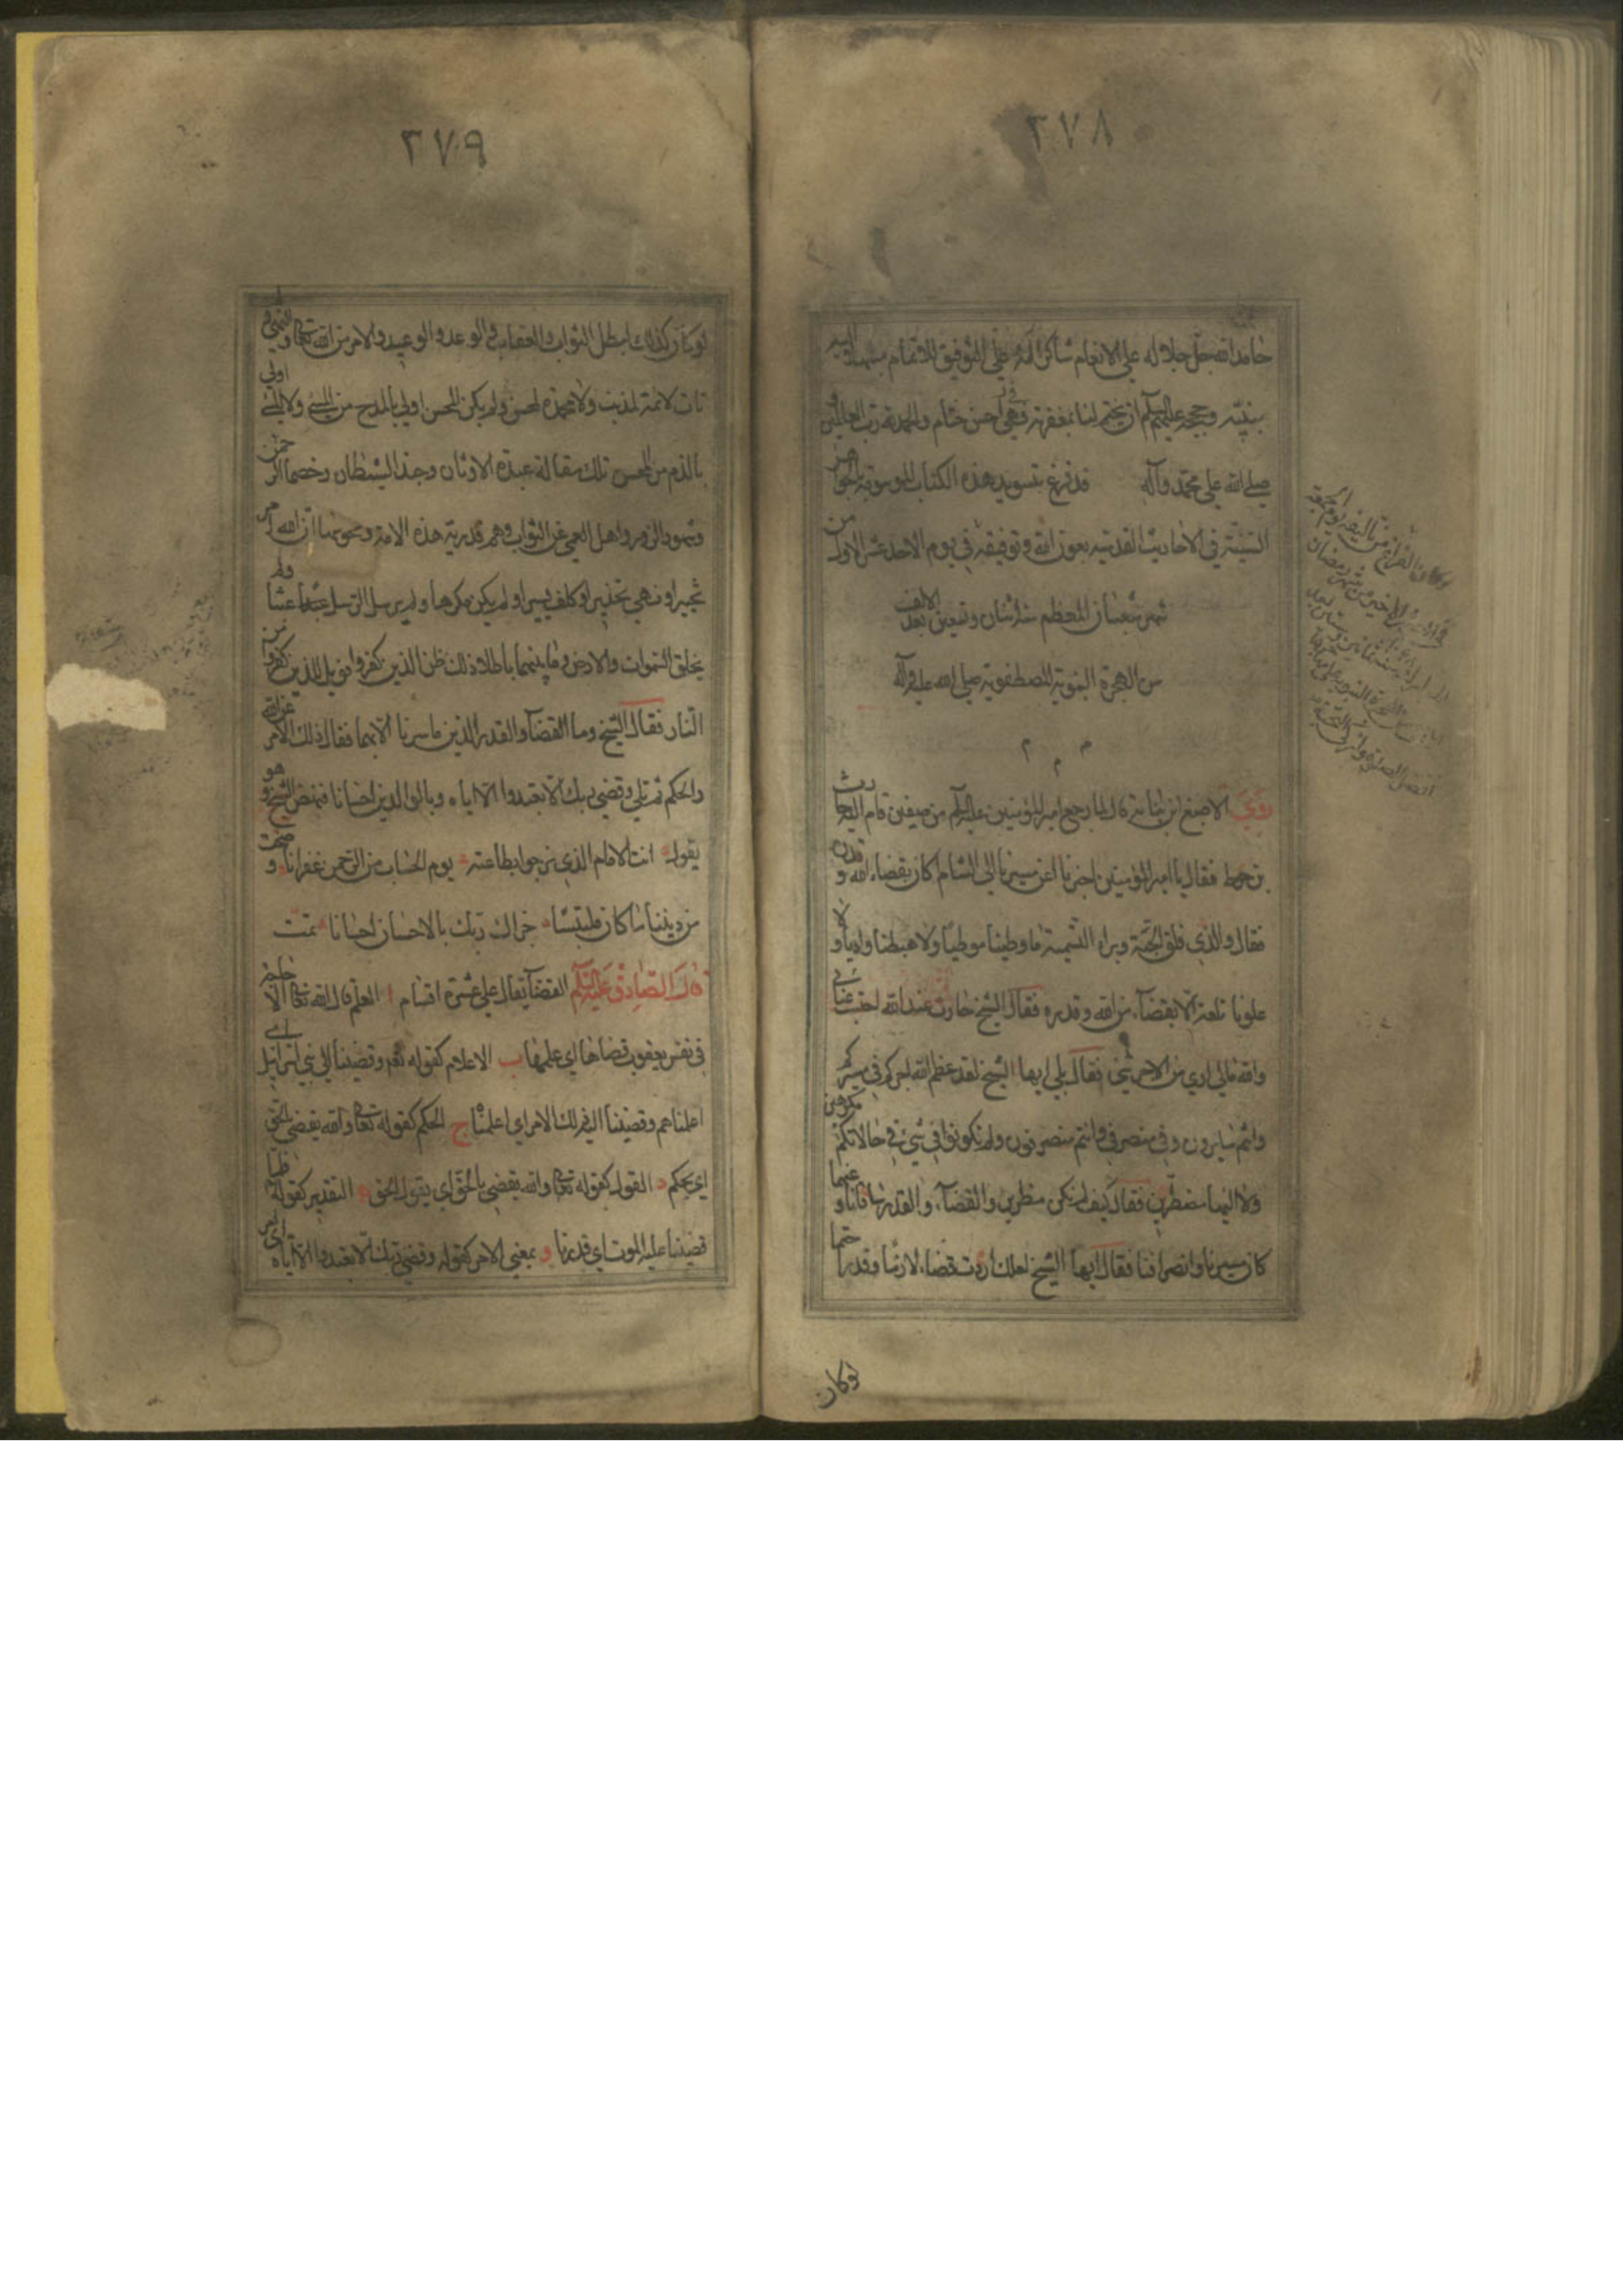 ٢٧٨
حامدا لله جل جلاله على الانعام شاكرا له على التوفيق للاتمام متوسلا اليه
بنبيّه وحججه عليهم السلام ان يختم لنا بمغفرته فهي احسن ختام والحمد لله رب العالمين و
صلى الله على محمد وآله قد فرغ بتسويد هذه الكتاب الموسومة بالجواهر
السنيّة في الاحاديث القدسيّه بعون الله وتوفيقه في يوم الاحد عشر الاول من
شهر شعبان المعظم سنة اثنان وتسعين بعد الالف
من الهجرة النبوية المصطفوية صلى الله عليه وآله
م م م
روي الاصبغ ابن نباتة قال لما رجع امير المؤمنين عليه السلم من صفين قام اليه حارث
بن حوط فقال يا امير المؤمنين اخبرنا عن مسيرنا الى الشام كان بقضاء الله و قدره
فقال والذي فلق الحبّة وبراء النسمة ما وطينا موطيا ولا هبطنا واديا و لا
علونا تلعة الّا بقضاء من الله وقدره فقال الشيخ حارث عند الله احتسب عنائي
والله مالي ارى من الاجر شئ فقال بلى ايها الشيخ لقد عظم الله اجركم في مسيركم
وانتم سايرون وفي منصرفكم وانتم منصرفون ولم تكونوا في شئ في حالاتكم مكرهين
ولا اليها مضطرين فقال كيف لم نكن مضطرين والقضاء والقدر ساقانا و عنهما
كان مسيرنا وانصرافنا فقال ايها الشيخ لعلك اردت قضاء لازما وقدرا حتما
لو كان
٢٧٩
لو كان كذلك لبطل الثواب والعقاب والوعد والوعيد والامر من الله تعالى والنهي و
تات لائمة لمذنب ولا محمدة لمحسن ولم يكن المحسن اولى بالمدح من المسئ ولا المسئ اولى
بالذم من المحسن تلك مقالة عبدة الاوثان وجند الشيطان وخصماء الرحمن
وشهود الزور واهل العمى عن الثواب وهم قدرية هذه الامة ومجوسها ان الله امر
تخييرا ونهى تحذيرا وكلف يسيرا ولم يكن مكرها ولم يرسل الرسل عبثا ولم
يخلق السموات والارض وما بينهما باطلا ذلك ظن الذين كفروا فويل للذين كفروا من
النار فقال الشيخ وما القضاء والقدر الذين ما سرنا الا بهما فقال ذلك الامر من الله
والحكم ثم تلى وقضى ربك الّا تعبدوا الّا اياه وبالوالدين احسانا فنهض الشيخ و هو
يقول انت الامام الذي نرجوا بطاعته يوم الحساب من الرحمن غفرانا اوضحت
من ديننا ما كان ملتبسا جزاك ربك بالاحسان احسانا تمت
قال الصادق عليه السلم القضاء يقال على عشرة اقسام ا العلم قال الله تعالى الا حاجة
في نفس يعقوب قضاها اي علمها ب الاعلام كقوله تعم وقضينا الى بني اسرائيل اي
اعلناهم وقضينا اليه ذلك الامر اي اعلمناه ج الحكم كقوله تعالى والله يقضي بالحق
اي يحكم د القول كقوله تعالى والله يقضي بالحق اي يقول الحق ه التقدير كقوله فلما
قضينا عليه الموت اي قدرنا و بمعنى الامر كقوله وقضى ربك الّا تعبدوا الّا اياه اي امر